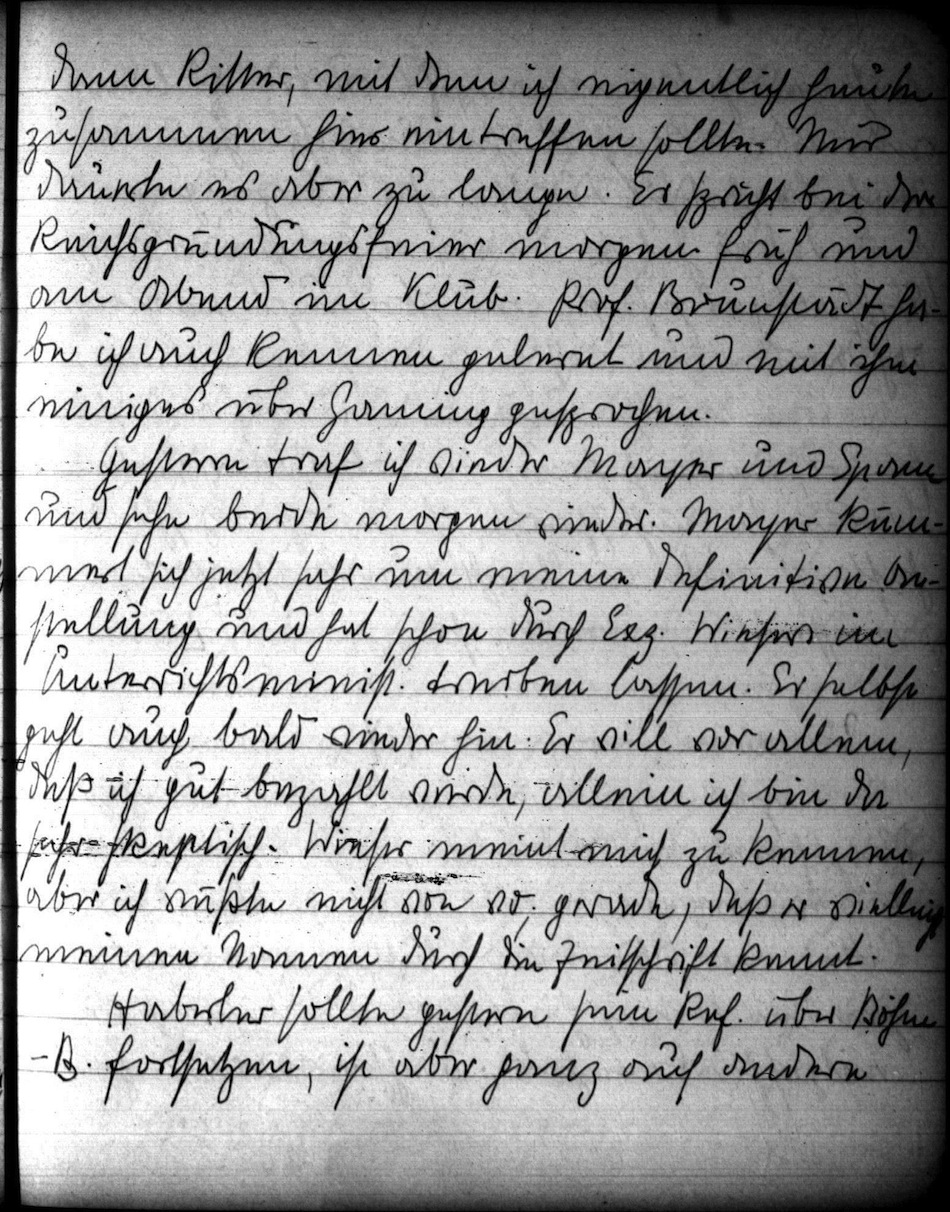 dann Ritter, mit dem ich eigentlich heute
zusammen hier eintreffen sollte. Mir
dauerte es aber zu lange. Er spricht bei der
Reichsgründungsfeier morgen früh und
am Abend im Klub. Prof. Brunstädt ha-
be ich auch kennen gelernt und mit ihm
einiges über gesprochen.
Gestern traf ich wieder Mayer und Spann
und sehe beide morgen wieder. Mayer küm-
mert sich jetzt sehr um meine definitive An-
stellung und hat schon durch Exz. Wieser im
Unterrichtsminist. treiben lassen. Er selbst
geht auch bald wieder hin. Er will vor allem,
daß ich gut bezahlt würde, allein ich bin da
sehr skeptisch. Wieser meint mich zu kennen,
aber ich wüßte nicht von wo, gerade, daß er vielleicht
meinen Namen durch die Zeitschrift kennt.
Haberler sollte gestern sein Ref. über Böhm
-B. fortsetzen, ist aber ganz auf andere